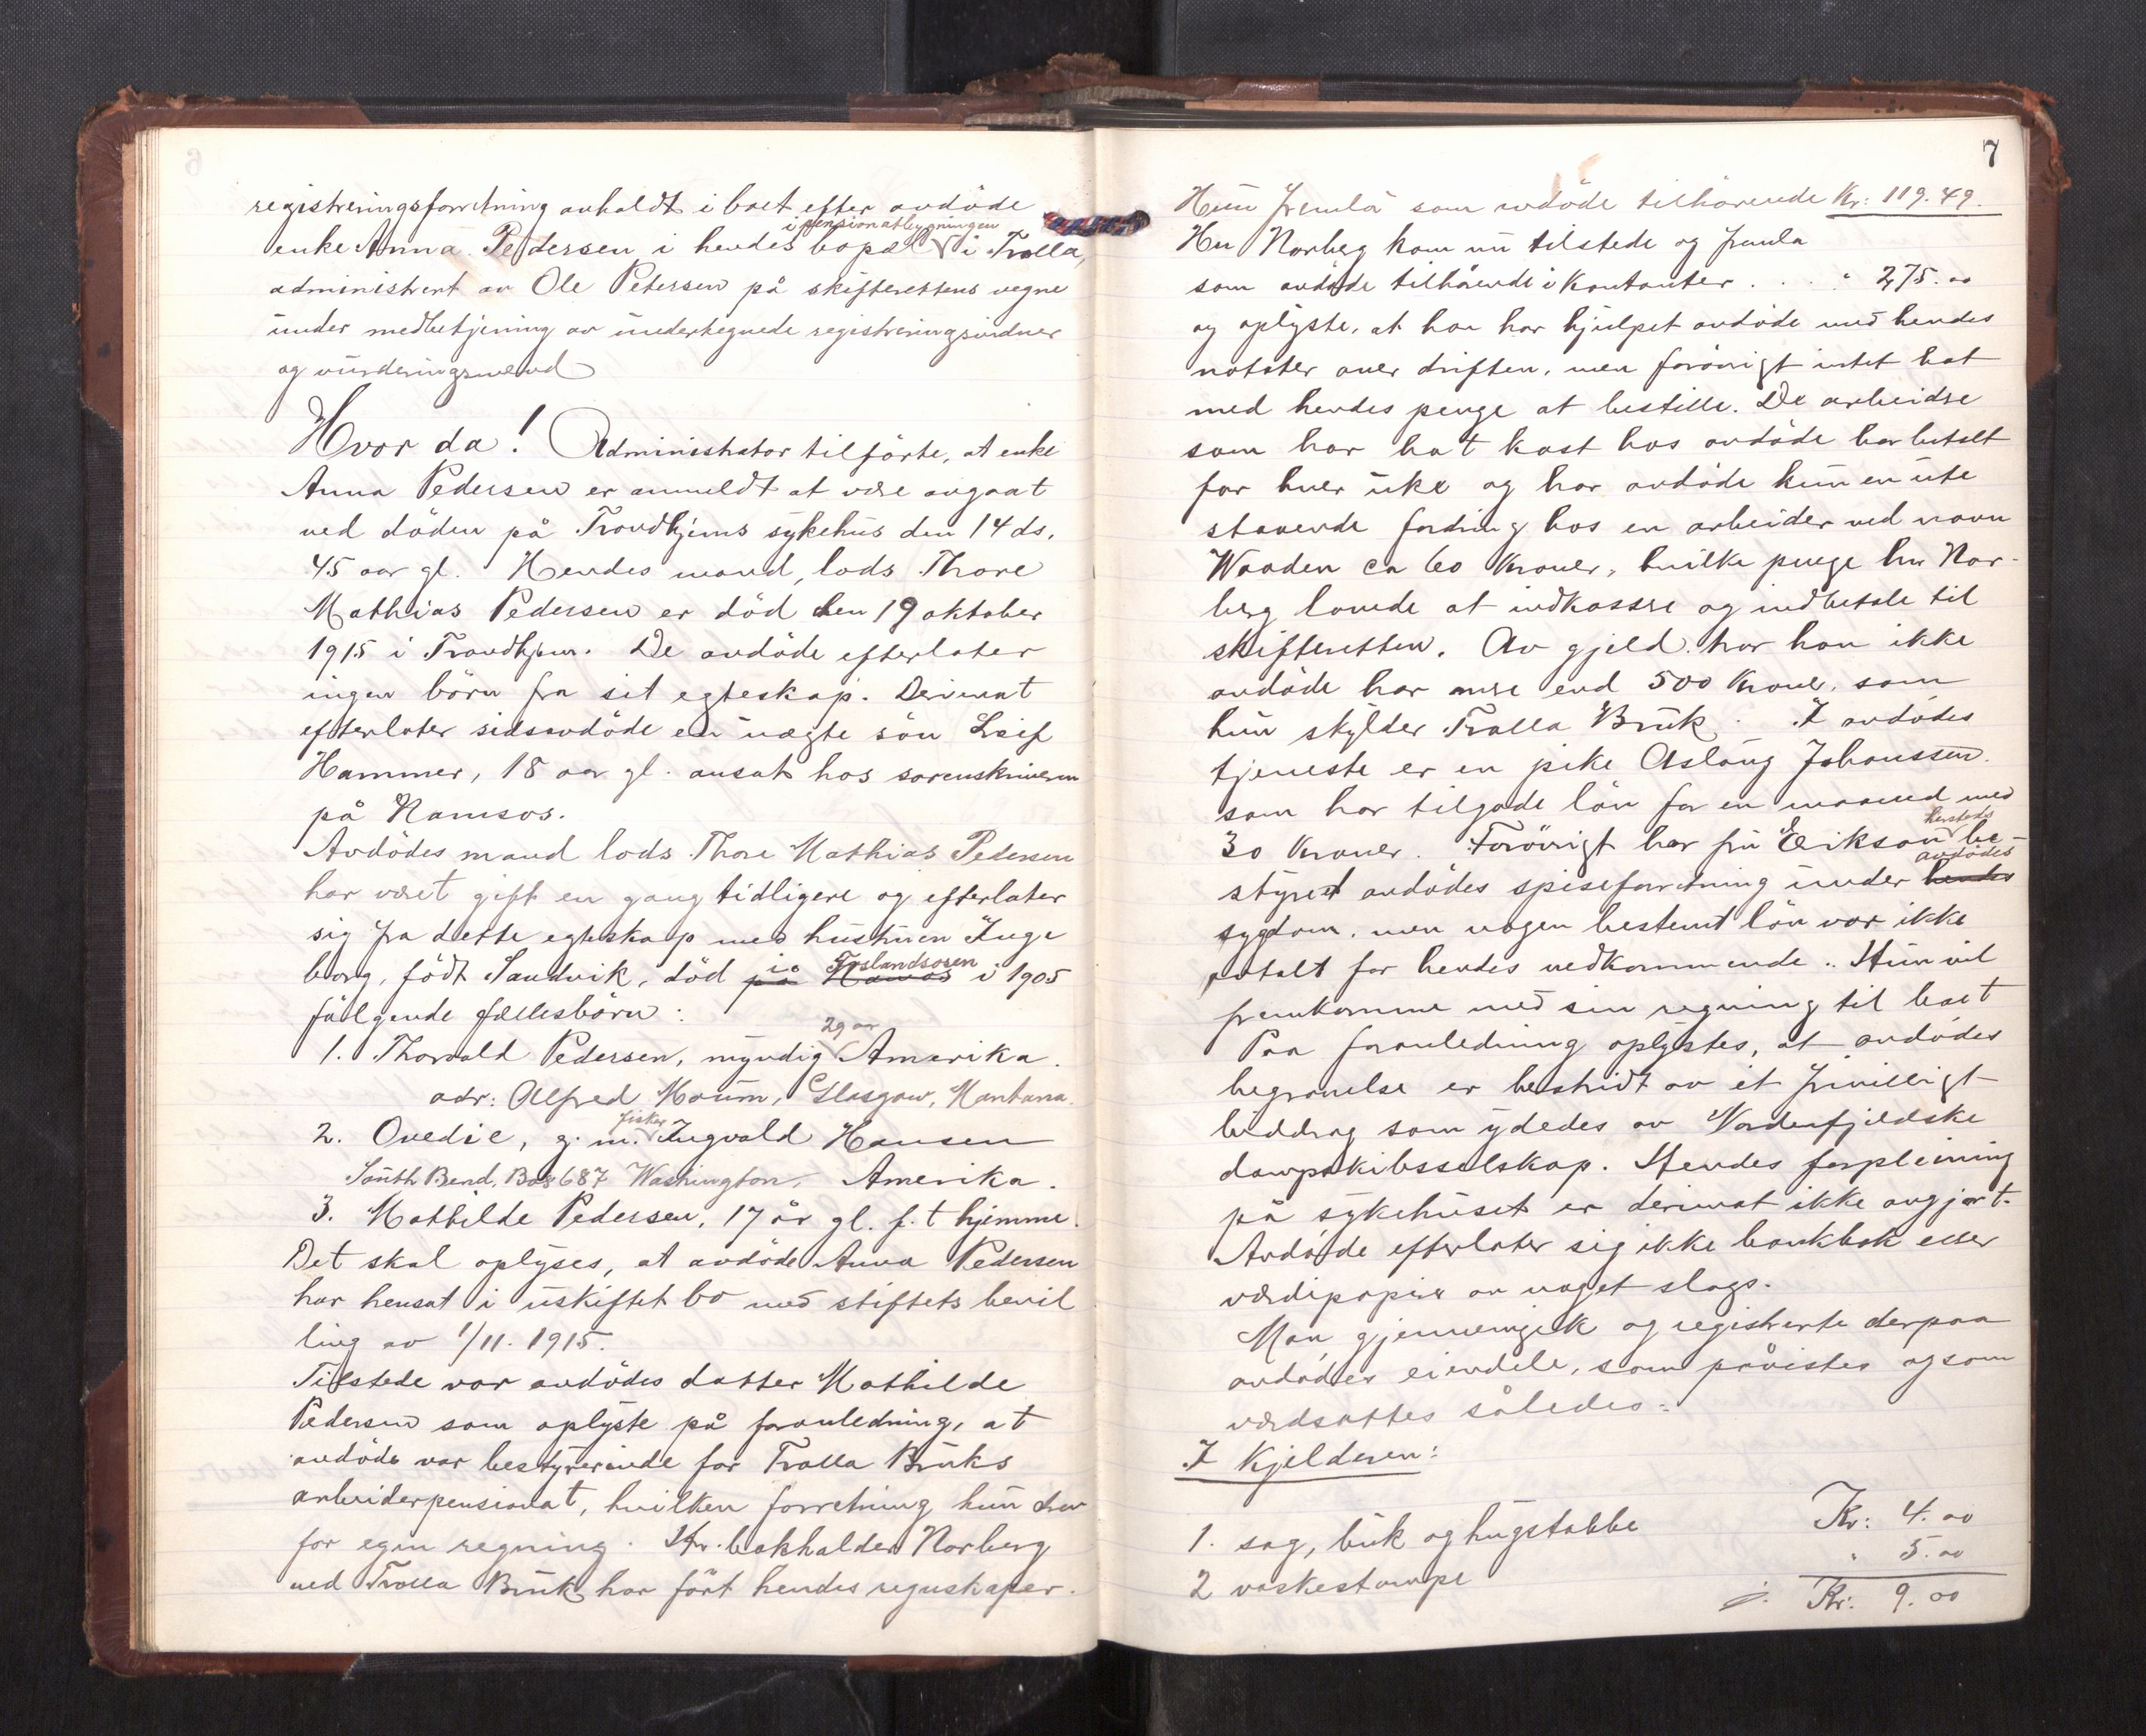 registreringsforretning avholdt i boet efter avdöde
i pensionatbygningen
enke Anna Pedersen i hendes bopæl i Trolla,
administrert av Ole Petersen på skifterettens vegne
under medbetjening av undertegnede registreringsvidner
og vurderingsmænd
Hvor da! Administrator tilförte, at enke
Anna Pedersen er anmeldt at være avgaat
ved döden på Trondhjems sykehus den 14 ds,
45 aar gl. Hendes mand, lods Thore
Mathias Pedersen er död den 19 oktober
1915 i Trondhjem. De avdöde efterlater
ingen börn fra sit egteskap. Derimot
efterlater sidsavdöde en uægte sön Leif
Hammer, 18 aar gl. ansat hos sorenskriveren
på Namsos.
Avdödes mand lods Thore Mathias Pedersen
har været gift en gang tidligere og efterlater
sig fra dette egteskap med hustruen Inge
borg, födt Sandvik, död på i Foslandsosen i 1905
fölgende fællesbörn:
29 aar
1. Thorvald Pedersen, myndig Amerika.
adr: Alfred Moum, Glasgow, Montana.
fisker
2. Ovedie, g. m. Ingvald Hansen
South Bend, Box 687 Washington, Amerika.
3. Mathilde Pedersen, 17 år gl. f. t hjemme.
Det skal oplyses, at avdöde Anna Pedersen
har hensat i uskiftet bo med stiftets bevil
ling av 1/11. 1915.
Tilstede var avdödes datter Mathilde
Pedersen som oplyste på foranledning, at
avdöde var bestyrerinde for Trolla Bruks
arbeiderpensionat, hvilken forretning hun drev
for egen regning. Hr. bokholder Norberg
ved Trolla Bruk har fört hendes regnskaper.
7
Hun fremla som avdöde tilhörende Kr: 119.49.
Hr Norberg kom nu tilstede og fremla
som avdöde tilhörende i Kontanter . . . " 275.00
og oplyste, at han har hjulpet avdöde med hendes
notater over driften, men forövrigt intet hat
med hendes penge at bestille. De arbeidre
som har hat kost hos avdöde har betalt
for hver uke og har avdöde kun en ute
staaende fordring hos en arbeider ved navn
Waaden ca 60 Kroner, hvilke penge hr Nor-
berg lovede at indkassere og indbetale til
skifteretten. Av gjeld har hun ikke
avdöde har mere end 500 Kroner, som
hun skylder Trolla Bruk. I avdödes
tjeneste er en pike Aslaug Johanssen.
som har tilgode lön for en maaned med
30 Kroner. Forövrigt har fru Erikson be-
avdödes
styret avdödes spiseforretning under hendes
sygdom, men nogen bestemt lön var ikke
avtalt for hendes vedkommende. Hun vil
fremkomme med sin regning til boet
Paa foranledning oplystes, at avdödes
begravelse er bestridt av et frivilligt
biddrag som ydedes av Nordenfjeldske
dampskibsselskap. Hendes forpleining
på sykehuset er derimot ikke avgjort.
Avdöde efterlater sig ikke bankbok eller
værdipapirer av noget slags.
Man gjennemgik og registrerte derpaa
avdödes eiendele, som påvistes og som
værdsattes således:
I Kjelderen:
1. sag, buk og hugstabbe Kr: 4.00
2 vaskestampe " 5.00
Kr: 9.00